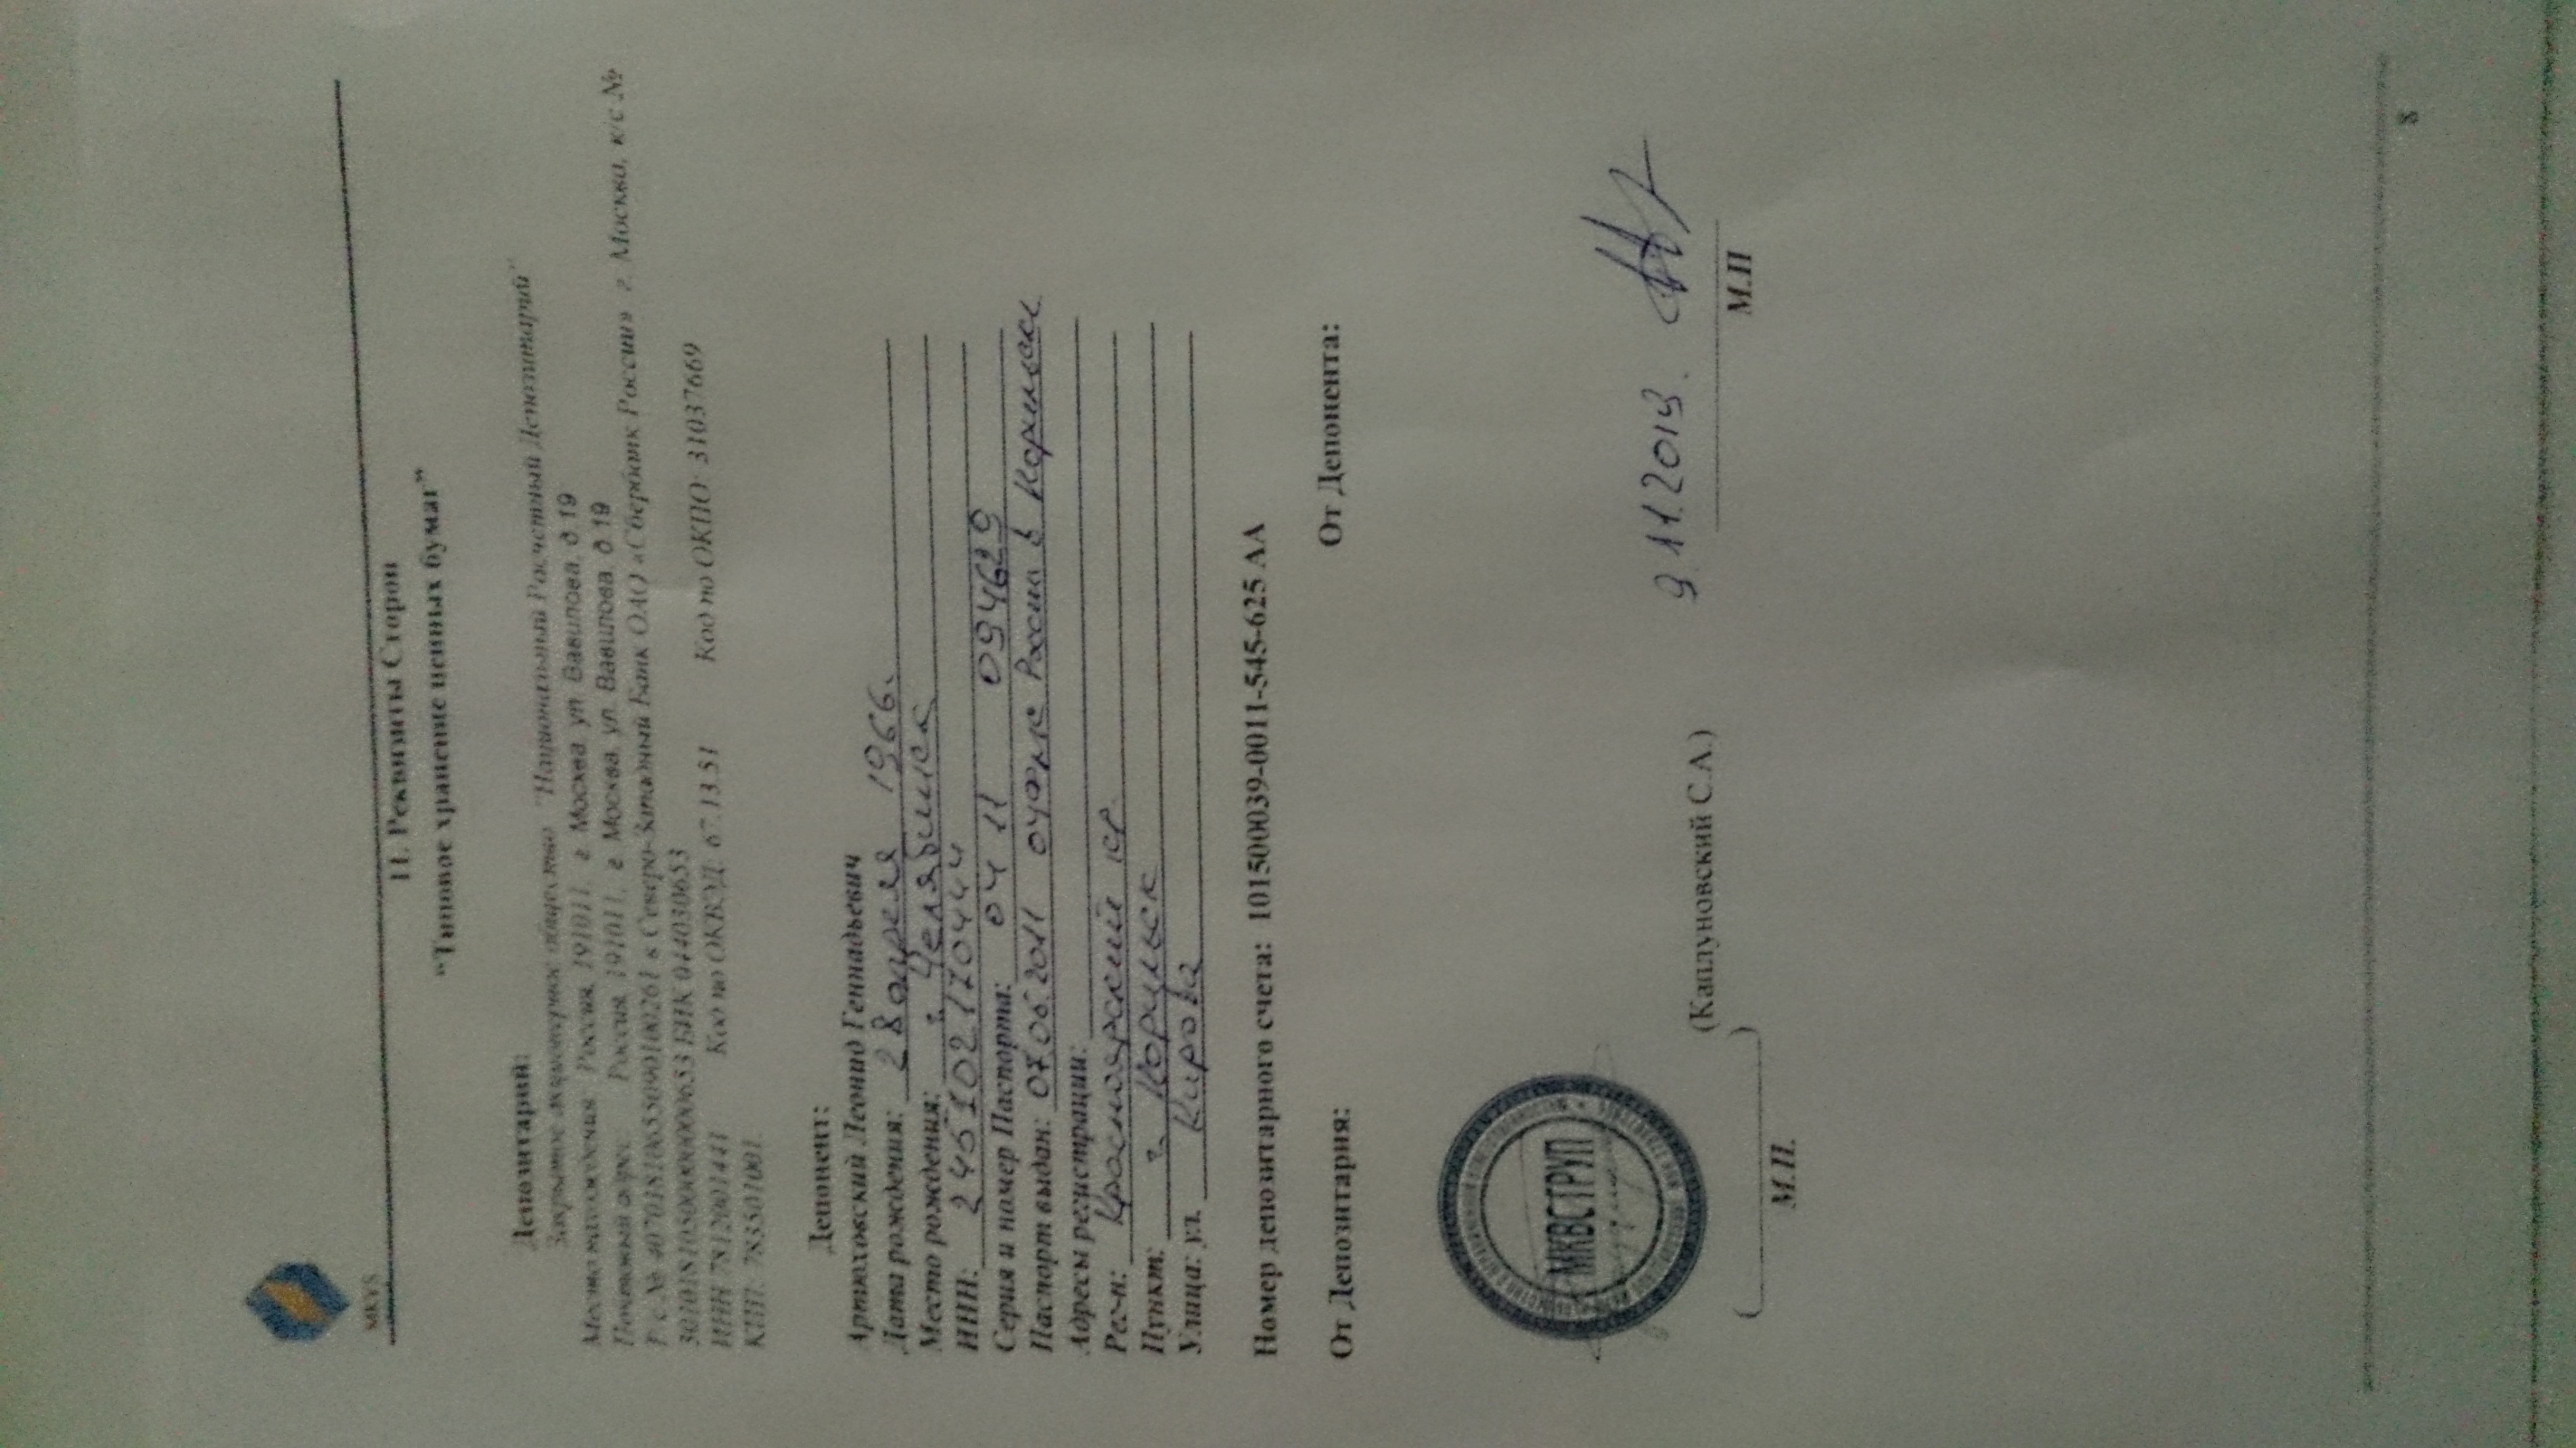 MKVS
11. Реквизиты Сторон
“Типовое хранение ценных бумаг”
Депозитарий:
Закрытое акционерное общество "Национальный Расчетный Депозитарий"
Место нахождения: Россия, 191011, г. Москва, ул. Вавилова, д.19
Почтовый адрес: Россия, 191011, г. Москва, ул. Вавилова, д.19
Р/с № 40701810655090100261 в Северо-Западный Банк ОАО «Сбербанк России» г. Москва, к/с №
30101810500000000653 БИК 044030653
ИНН 7812001441 Код по ОКВЭД: 67.13.51 Код по ОКПО: 31037669
КПП: 783501001.
Депонент:
Артюховский Леонид Геннадьевич
Дата рождения: 28 апреля 1966.
Место рождения: г. Челябинск
ИНН: 245102170444
Серия и номер Паспорта: 04 11 094629
Паспорт выдан: 07.06.2011 ОУФМС России в Норильске
Адресы регистрации:
Рег-н: Красноярский кр.
Пункт: г. Норильск
Улица: ул. Кирова
Номер депозитарного счета: 101500039-0011-545-625 АА
От Депозитария: От Депонента:
МКВСТРУП
9.11.2019.
(Каплуновский С.А.)
М.П
М.П.
8